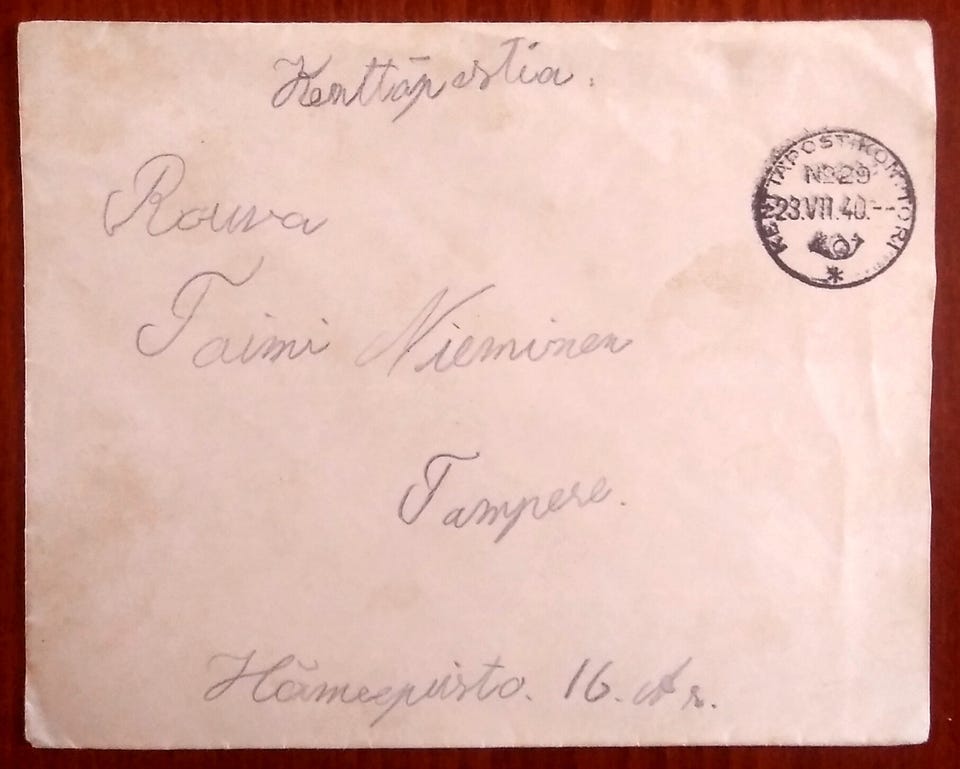 Kenttäpostia.
KENTTÄPOSTIKONTTORI
№29
23.VII.40.--
*
Rouva
Taimi Nieminen
Tampere.
Hämeepuisto. 16. A r.